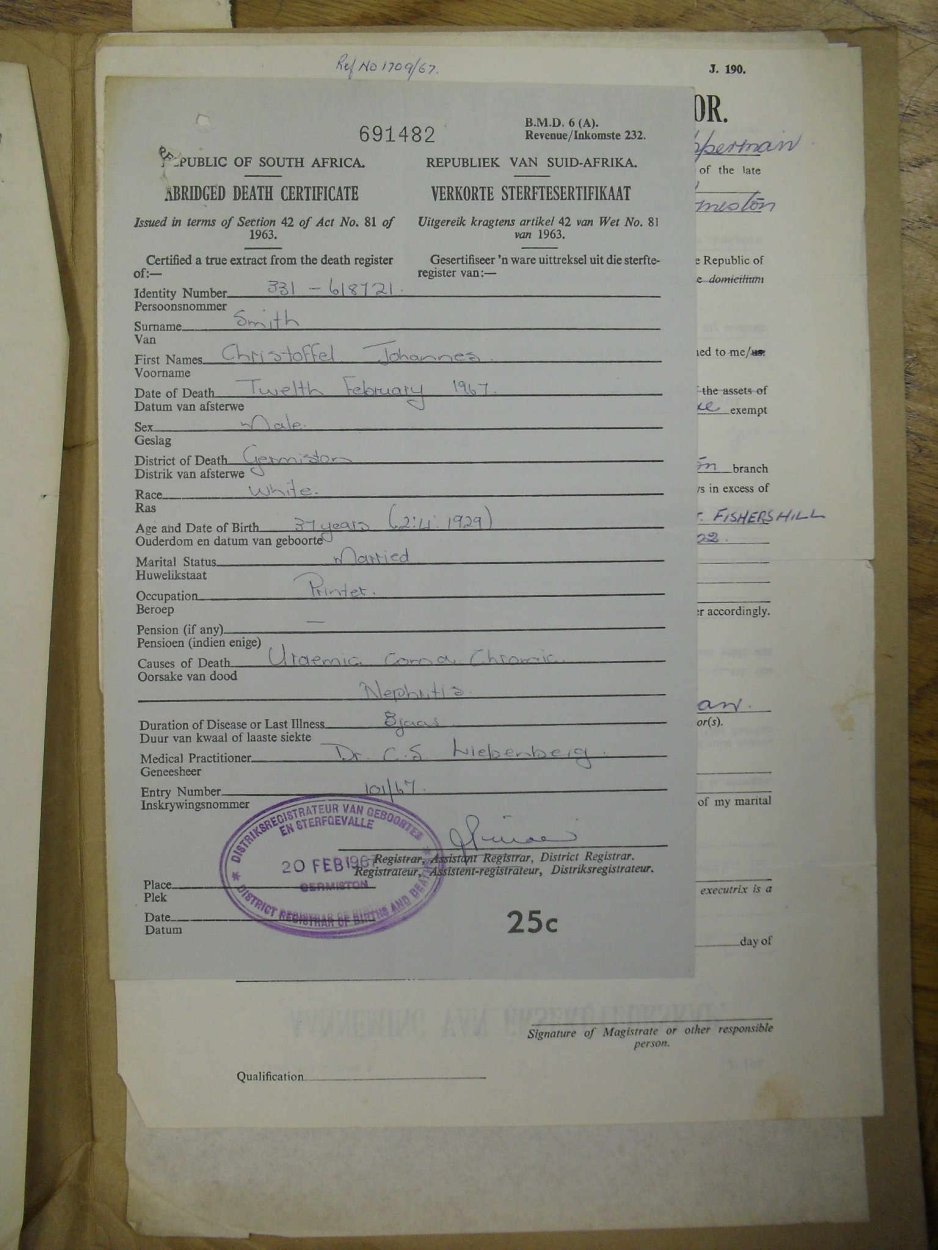 Ref No 1709/67.
J. 190.
OR.
B.M.D. 6 (A).
691482
Revenue/Inkomste 232.
PUBLIC OF SOUTH AFRICA.
REPUBLIEK VAN SUID-AFRIKA.
ABRIDGED DEATH CERTIFICATE
VERKORTE STERFTESERTIFIKAAT
Issued in terms of Section 42 of Act No. 81 of
1963.
Uitgereik kragtens artikel 42 van Wet No. 81
van 1963.
Certified a true extract from the death register
of:—
Gesertifiseer 'n ware uittreksel uit die sterfte-
register van:—
Identity Number 331 - 618721.
Persoonsnommer
Surname Smith
Van
First Names Christoffel Johannes.
Voorname
Date of Death Twelth February 1967.
Datum van afsterwe
Sex Male.
Geslag
District of Death Germiston
Distrik van afsterwe
Race White.
Ras
Age and Date of Birth 37 years (2:4:1929)
Ouderdom en datum van geboorte
Marital Status Married
Huwelikstaat
Occupation Printer.
Beroep
Pension (if any) —
Pensioen (indien enige)
Causes of Death Uraemic coma Chronic
Oorsake van dood
Nephritis.
Duration of Disease or Last Illness
Duur van kwaal of laaste siekte
Medical Practitioner Dr. C. S. Liebenberg.
Geneesheer
Entry Number 101/67.
Inskrywingsnommer
DISTRIKSREGISTRATEUR VAN GEBOORTES
EN STERFGEVALLE
20 FEB 196
GERMISTON
DISTRICT REGISTRAR OF BIRTHS AND DEATHS
Registrar, Assistant Registrar, District Registrar.
Registrateur, Assistent-registrateur, Distriksregistrateur.
Place
Plek
Date
Datum
25c
of the late
e Republic of
e domicilium
ed to me/us
the assets of
exempt
branch
s in excess of
FISHERSHILL
22.
r accordingly.
or(s).
of my marital
executrix is a
day of
Signature of Magistrate or other responsible
person.
Qualification